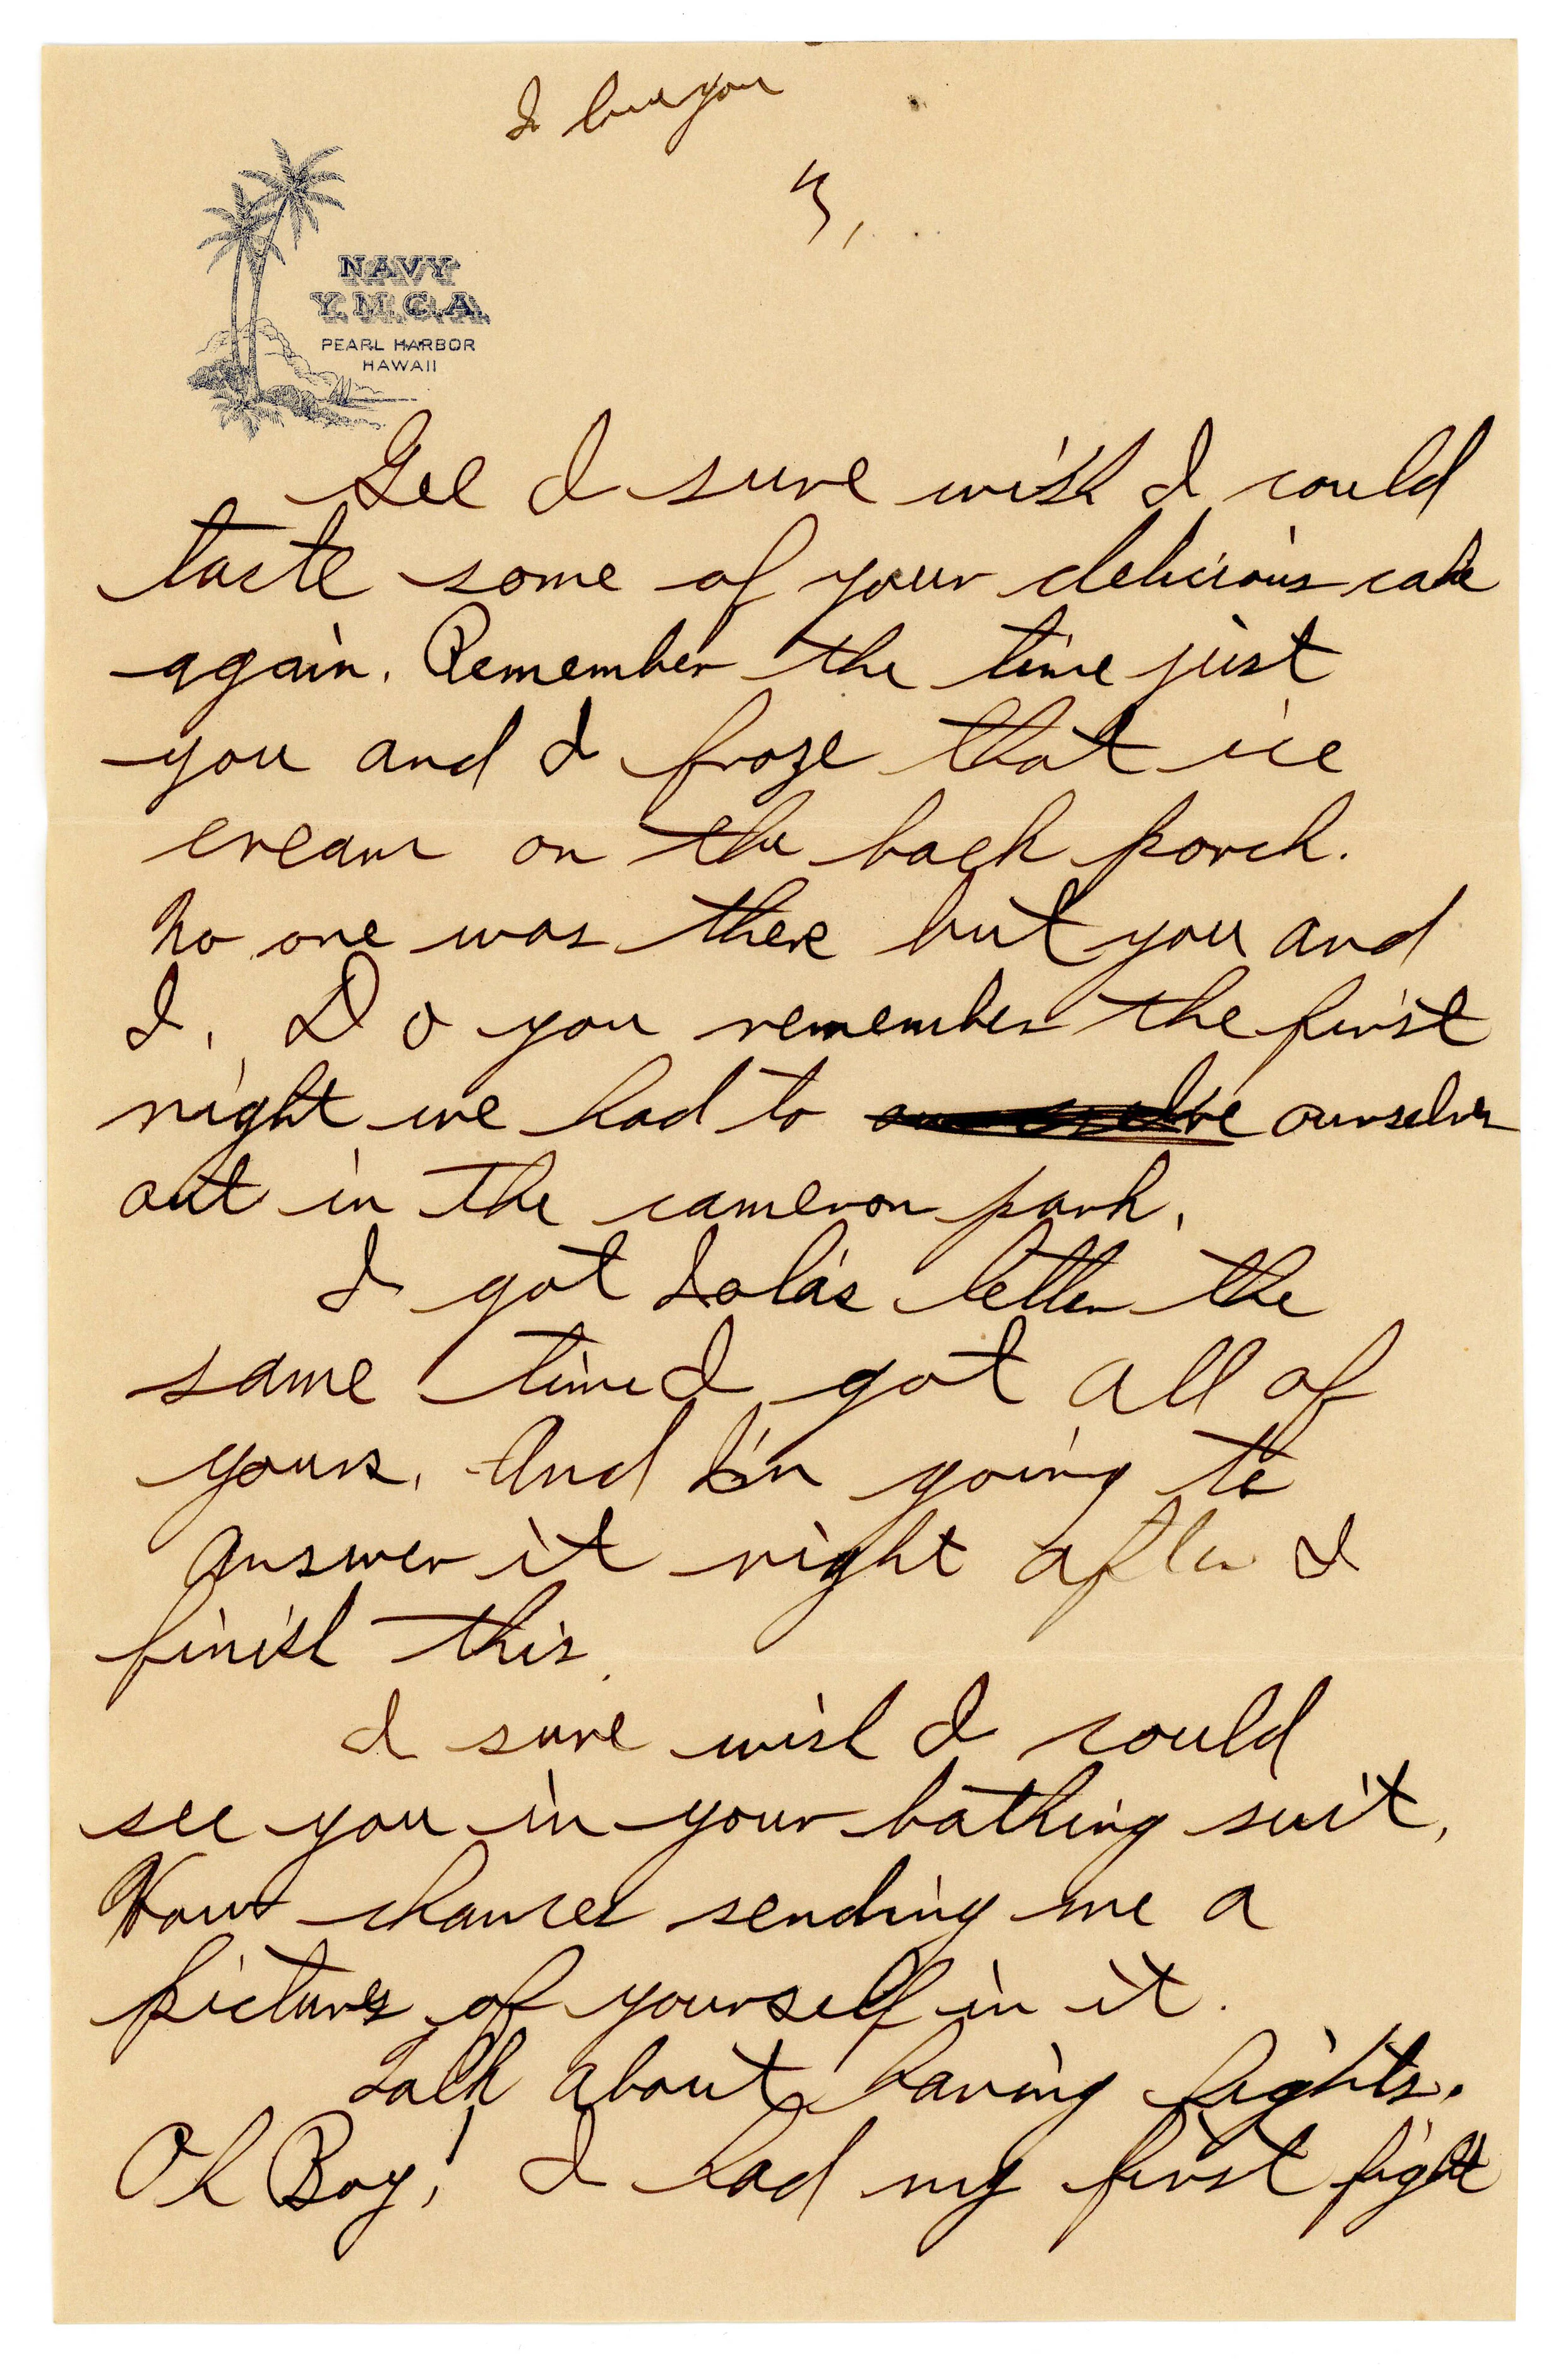 I love you
3,
NAVY
Y.M.C.A.
PEARL HARBOR
HAWAII
Gee I sure wish I could
taste some of your delicious cake
again. Remember the time just
you and I froze that ice
cream on the back porch.
No one was there but you and
I. Do you remember the first
night we had to ourselves
out in the cameron park.
I got Lola's letter the
same time I got all of
yours. And I'm going to
answer it right after I
finish this.
I sure wish I could
see you in your bathing suit.
How chances sending me a
pictures of yourself in it.
Talk about having fights.
Oh Boy! I had my first fight